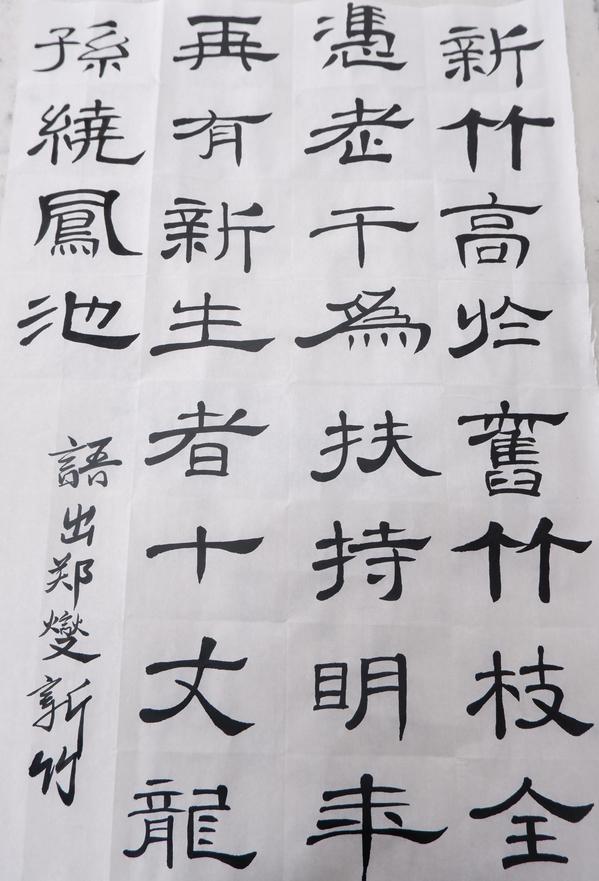 新竹高於舊竹枝全
憑老干為扶持明年
再有新生者十丈龍
孫繞鳳池
語出郑燮新竹